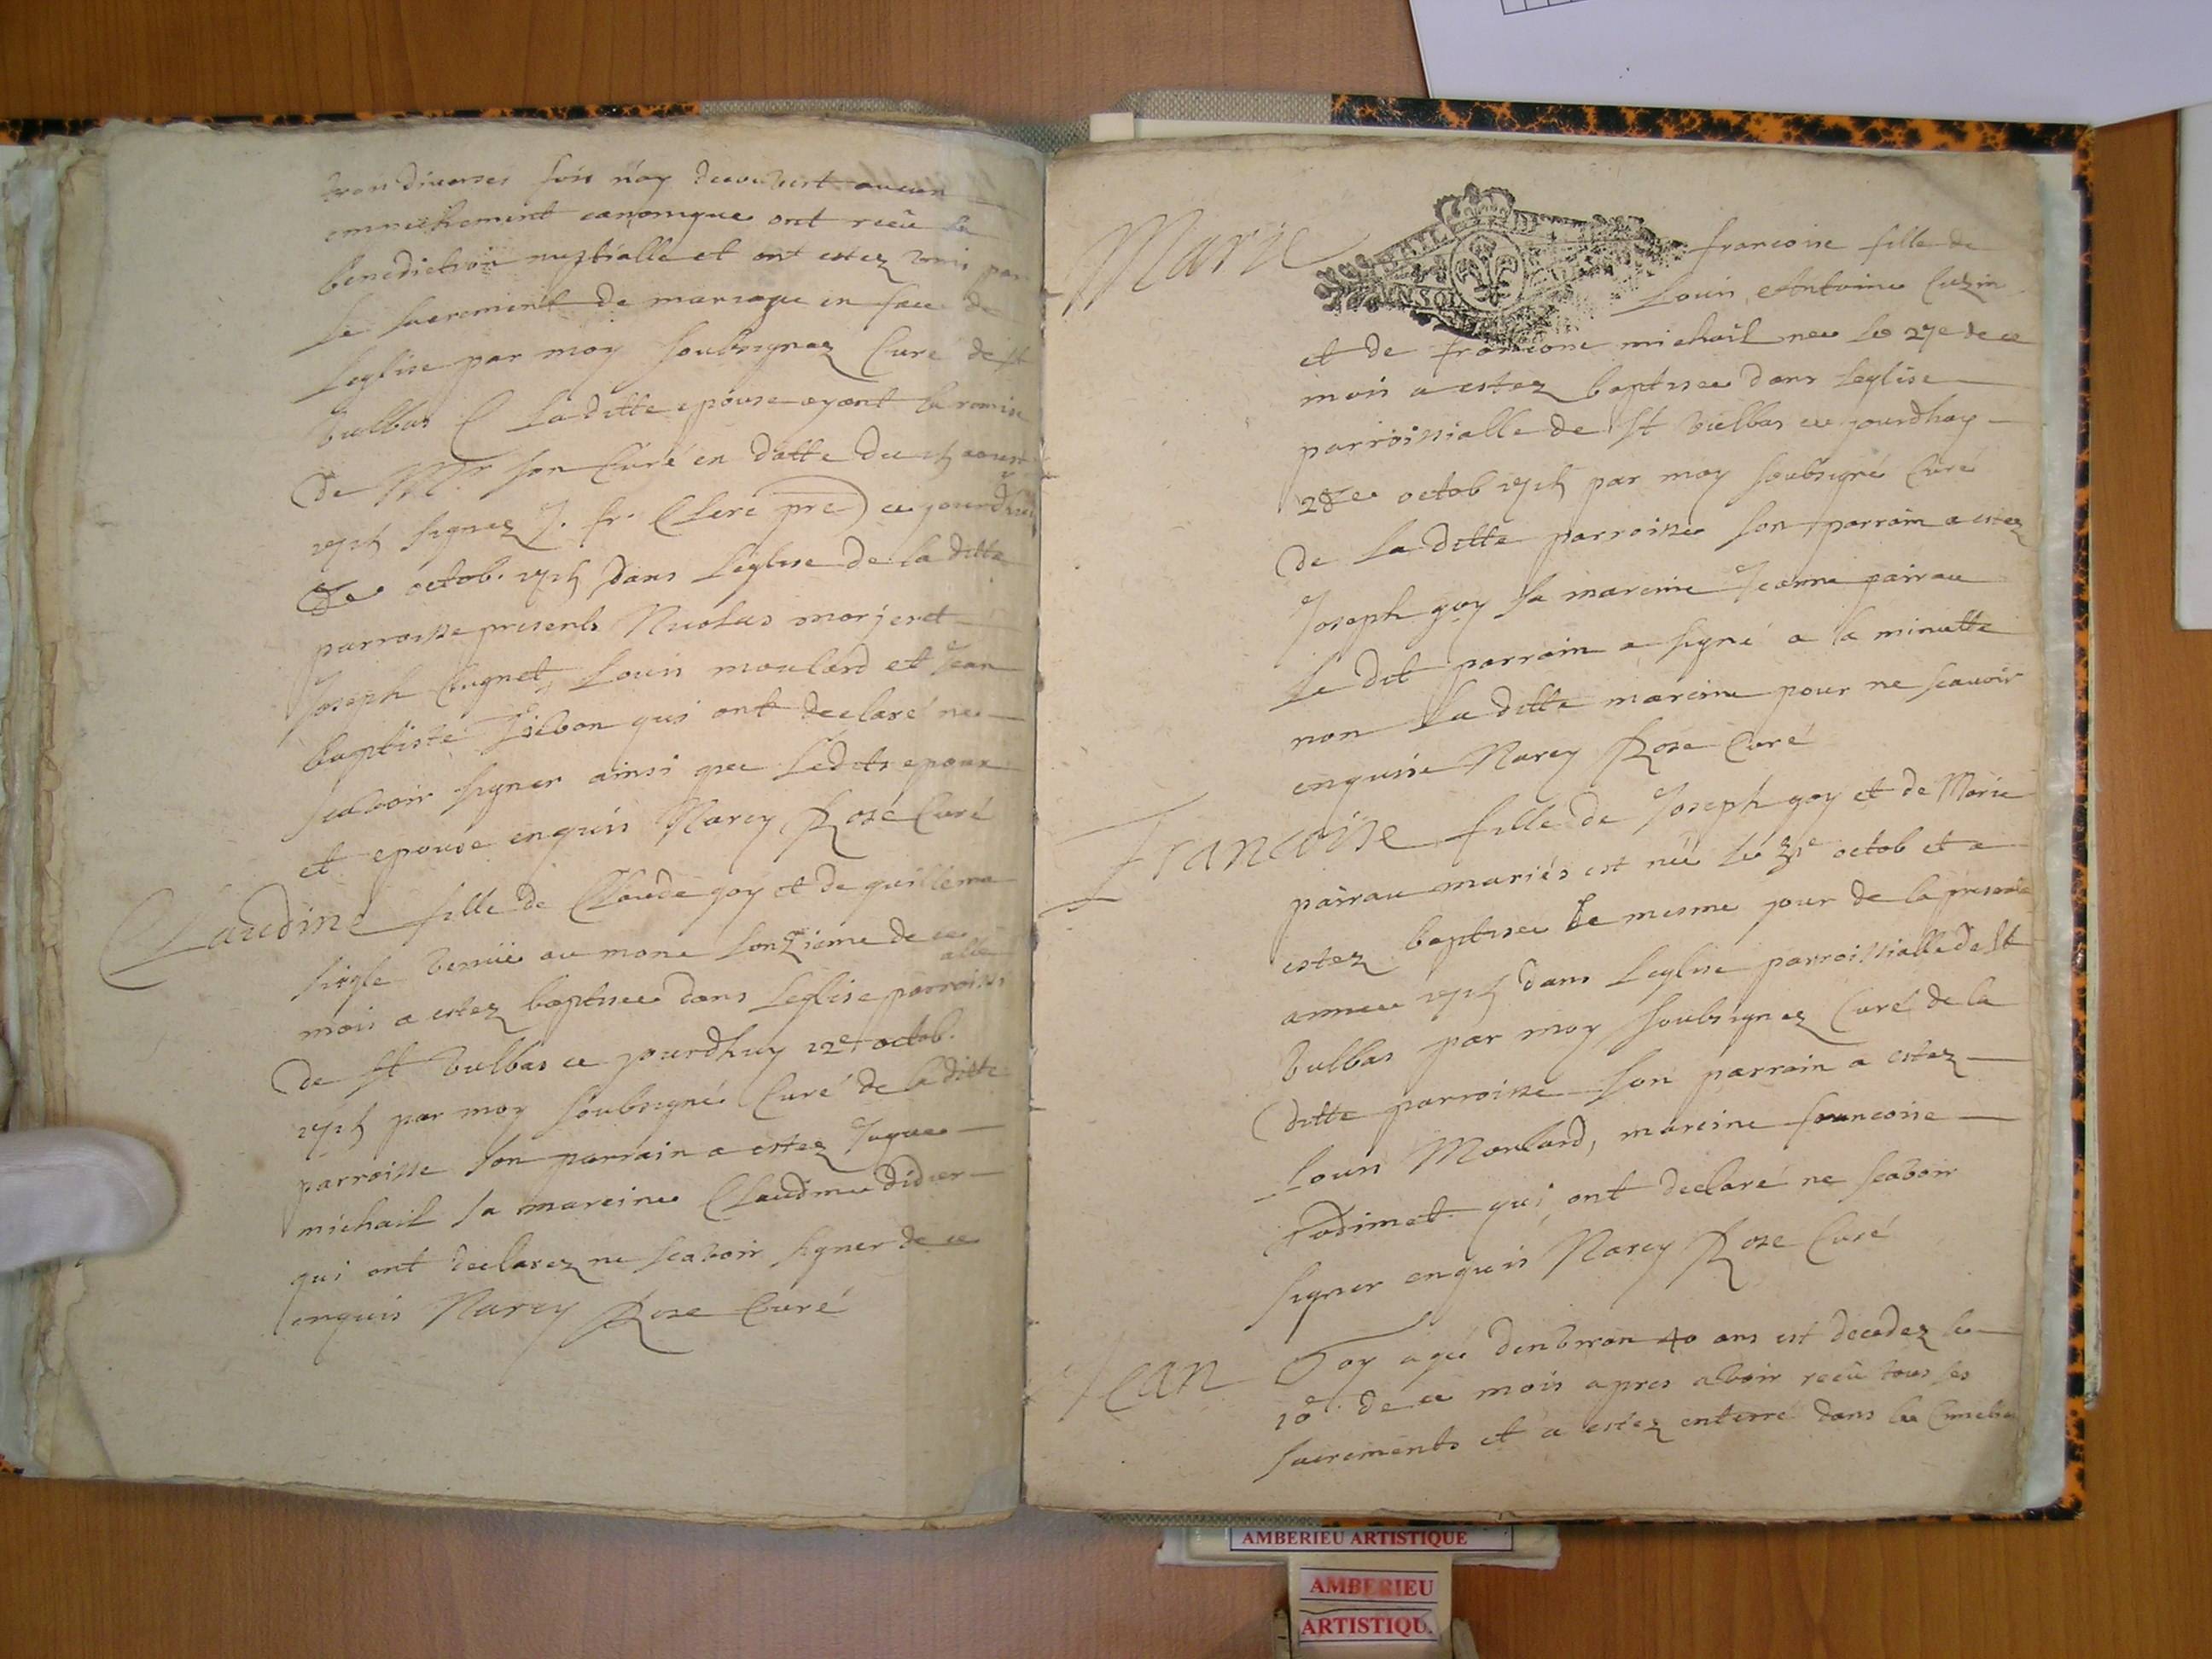 trois diverses fois n'ay decouvert aucun
empechement canonique ont receu la
benediction nuptialle et ont estez unis par
le sacrement de mariage en face de
leglise par moy soubsignez Curé de st
Vulbas Laditte epouse ayant la remise
de Mr son Curé en datte du aoust
signez J. fr. Clerc pre ce jourdhuy
octob. dans Leglise de la ditte
parroisse presents Nicolas morjeret
Joseph Cugnet, Louis moulard et Jean
baptiste qui ont declaré ne
scavoir signer ainsi que Ledits epoux
et epouse enquis Narcy Rose Curé
Claudine fille de Claude goy et de guillema
sigle venüe au mone Lonzieme de ce
mois a estez baptisee dans Leglise parroissialle
de St Vulbas ce jourdhuy 12e octob.
par moy soubsigné Curé de laditte
parroisse son parrain a estez Juques
michail sa mareine Claudine didier
qui ont declarez ne scavoir signer de ce
enquis Narcy Rose Curé
Marie francoise fille de
Louis Antoine Cuzin
et de francoise michail nee le 27e de ce
mois a estez baptisee dans Leglise
parroissialle de St Vulbas ce jourdhuy
28e octob par moy soubsigné Curé
de la ditte parroisse son parrain a estez
Joseph goy sa mareine Jeanne pairau
Le dit parrain a signé a la minutte
non La ditte mareine pour ne scavoir
enquise Narcy Rose Curé
Francoise fille de Joseph goy et de Marie
pairau mariés est née le 31e octob et a
estez baptisee Le mesme jour de la presente
annee dans Leglise parroissialle de St
Vulbas par moy soubsignez Curé de la
ditte parroisse son parrain a estez
Louis Moulard, mareine francoise
qui ont declaré ne scavoir
signer enquis Narcy Rose Curé
Jean Goy agé denviron 40 ans est decedez le
10e de ce mois apres avoir receu tous ses
sacrements et a estez enterré dans le
AMBERIEU ARTISTIQUE
AMBERIEU
ARTISTIQU